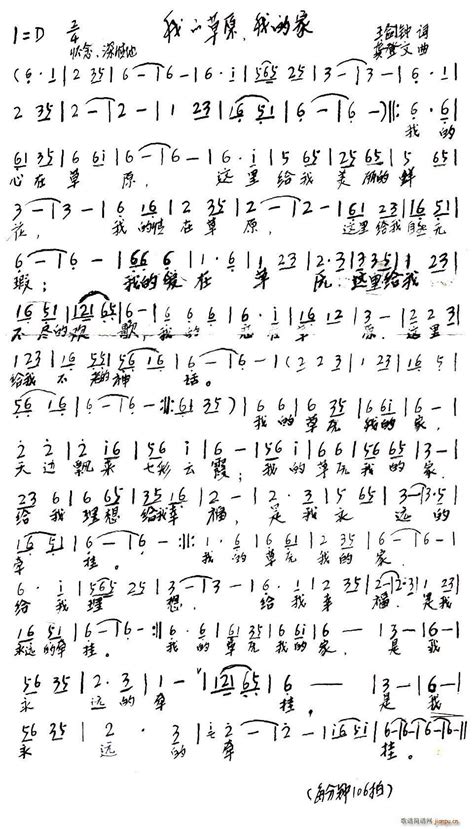 我的草原，我的家
1=D 2/4 王剑钟 词
怀念、深感地 文 曲
(6·1|2 35|6-|6-|6·i|565 25|3-|3-|
2 35|2-|2-|1 23|16 51|6-|6-):‖:6·6|
我的
61 35|6 6i|6-|6-|6·i|5 65|25 65|5 65|
心在草原，这里给我美丽的鲜
3-|3-|6·16|2 35|2-|2-|61 23|16 51|
花，我的情在草原，这里给我自然无
6-|6-|66 6|1·6|1 23|2·3|3 35|1 23|
瑕；我的爱在草原这里给我
16 51|121 65|6·6|
不尽的欢歌，我的恋在草原，这里
123|16 55|56 16|6-|6-(2 23|1 23|16 5|
给我不老的神话。
56 16|6-|6-:‖:61 35)|6 6|6 35|6 6i|6-|
我的草原我的家，
2 2|2 i6|56 i|6-|56 i|6 6|56 65|3-|
天边飘来七彩云霞；我的草原我的家，
23 6|6 65|35 16|2-|2·3|5 65|3-|3·5|
给我理想给我幸福，是我永远的
16 5|6-|6-:‖:1·6|16 61|2 35|6-|6-|
牵挂。我的草原我的家
6·i|565 25|3-|3-|6·1|2 35|2-|2·3|1 23|
给我理想，给我幸福，是我
16 51|6-|6-:‖6·6|61 35|6 6i|6-|3-|6-|
永远的牵挂。我的草原我的家。是我
56 35|2·3|1-|121 65|6-|3-|6-|
永远的牵挂。是我
56 35|2·3|i-|2-|i2-|i6 5i|6-|6-|6-|6-‖
永远的牵挂。
(每分钟106拍)
歌谱简谱网 jianpu.cn